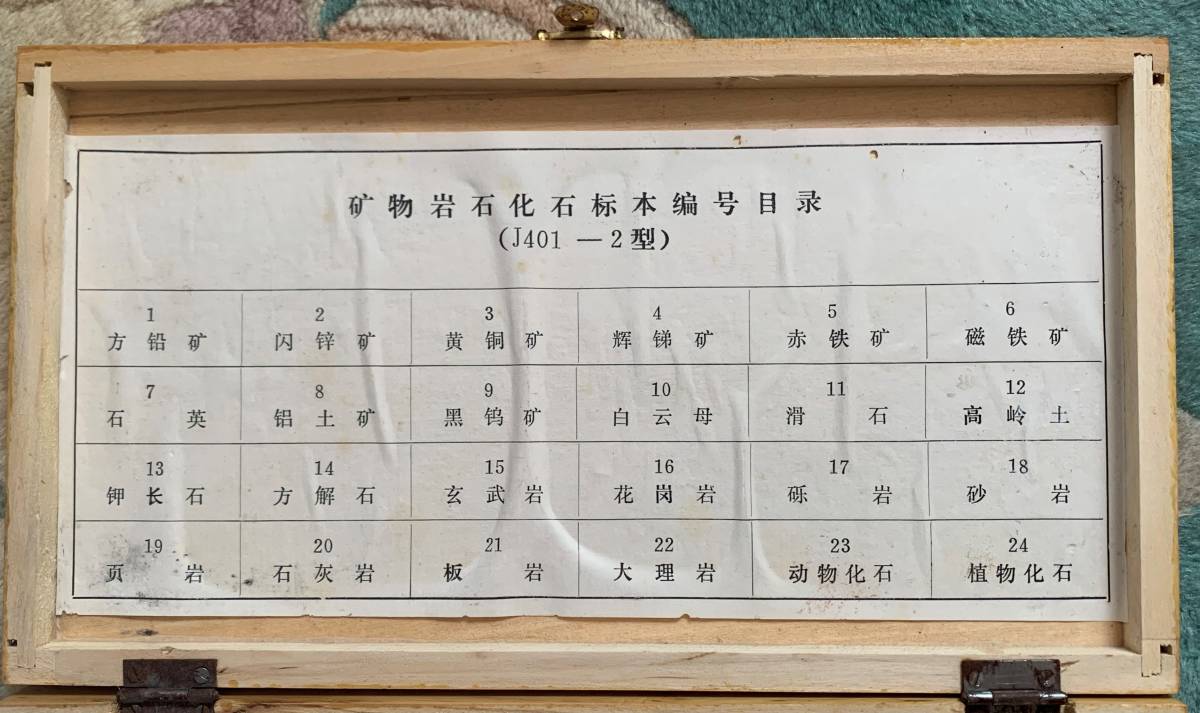 矿物岩石化石标本编号目录
(J401—2型)
1 2 3 4 5 6
方铅矿 闪锌矿 黄铜矿 辉锑矿 赤铁矿 磁铁矿
7 8 9 10 11 12
石英 铝土矿 黑钨矿 白云母 滑石 高岭土
13 14 15 16 17 18
钾长石 方解石 玄武岩 花岗岩 砾岩 砂岩
19 20 21 22 23 24
页岩 石灰岩 板岩 大理岩 动物化石 植物化石